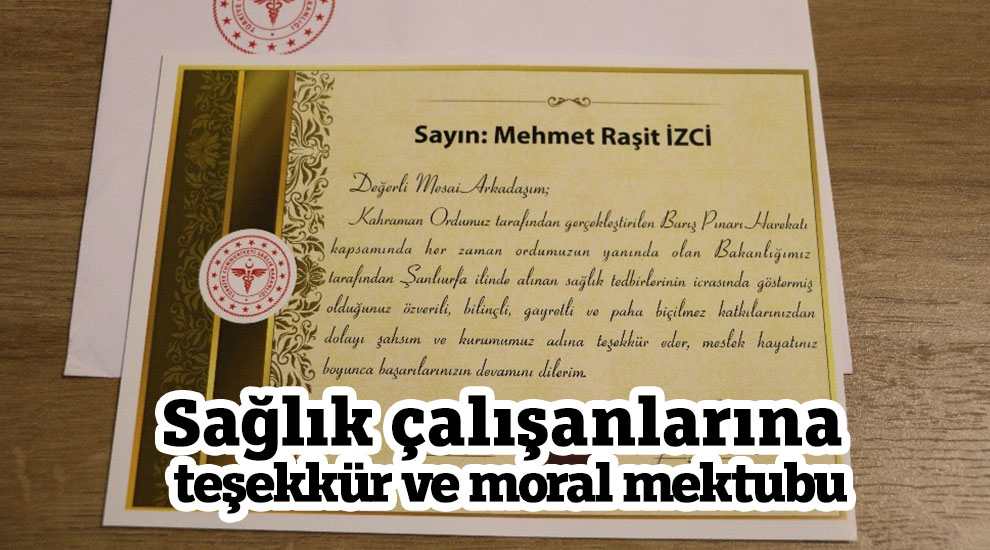 Sayın: Mehmet Raşit İZCİ
Değerli Mesai Arkadaşım;
Kahraman Ordumuz tarafından gerçekleştirilen Barış Pınarı Harekatı
kapsamında her zaman ordumuzun yanında olan Bakanlığımız
tarafından Şanlıurfa ilinde alınan sağlık tedbirlerinin icrasında göstermiş
olduğunuz özverili, bilinçli, gayretli ve paha biçilmez katkılarınızdan
dolayı şahsım ve kurumumuz adına teşekkür eder, meslek hayatınız
boyunca başarılarınızın devamını dilerim.
TÜRKİYE CUMHURİYETİ SAĞLIK BAKANLIĞI
Sağlık çalışanlarına
teşekkür ve moral mektubu